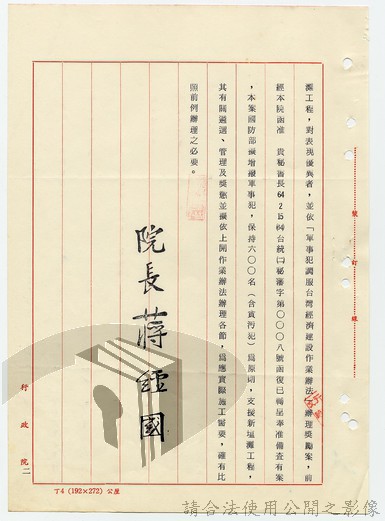 灘工程，對表現優異者，並依「軍事犯調服台灣經濟建設作業辦法」辦理獎勵案，前
經本院函准 貴秘書長64 2 15 台統(二)秘審字第〇〇〇八號函復已轉呈奉准備查有案
，本案國防部擬增撥軍事犯，保持六〇〇名（含貪污犯）為原則，支援新垣灘工程，
其有關遴選、管理及獎懲並擬依上開作業辦法辦理各節，為應實際施工需要，確有比
照前例辦理之必要。
院長 蔣經國
裝訂線
行政院二
丁4（192×272）公厘
請合法使用公開之影像